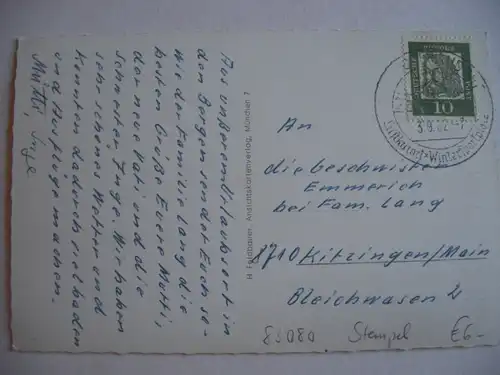 Aus unserem Urlaubsort in
den Bergen sendet Euch so-
wie der Familie Lang die
besten Grüße Eure Mutti,
der neue Vati und die
Schwester Inge. Wir haben
sehr schönes Wetter und
konnten dadurch viel baden
und Ausflüge machen.
Mutti, Inge
H. Feldbauer, Ansichtskartenverlag, München 7
DEUTSCHE
BUNDESPOST
10
3.9.62
Luftkurort + Wintersportplatz
An
die Geschwister
Emmerich
bei Fam. Lang
8710 Kitzingen/Main
Bleichwasen 2
83080 Stempel E6-